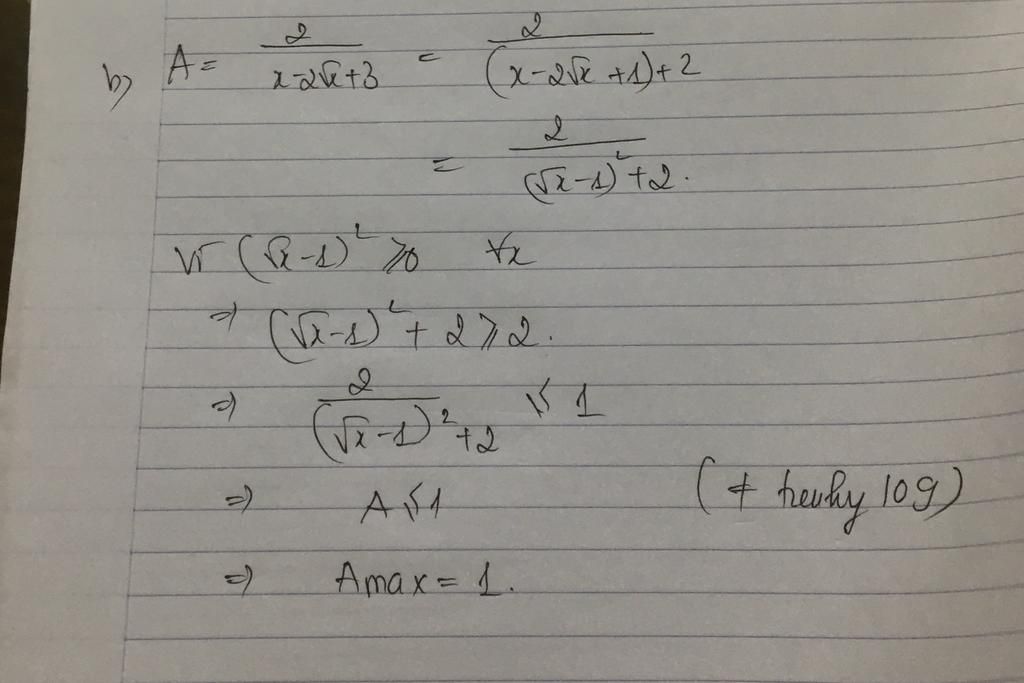 b) A = 2/(x-2√x+3) = 2/((x-2√x+1)+2)
= 2/((√x-1)²+2).
Vì (√x-1)² ⩾ 0 ∀x
⇒ (√x-1)² + 2 ⩾ 2.
⇒ 2/((√x-1)²+2) ⩽ 1
⇒ A ⩽ 1
⇒ Amax = 1.